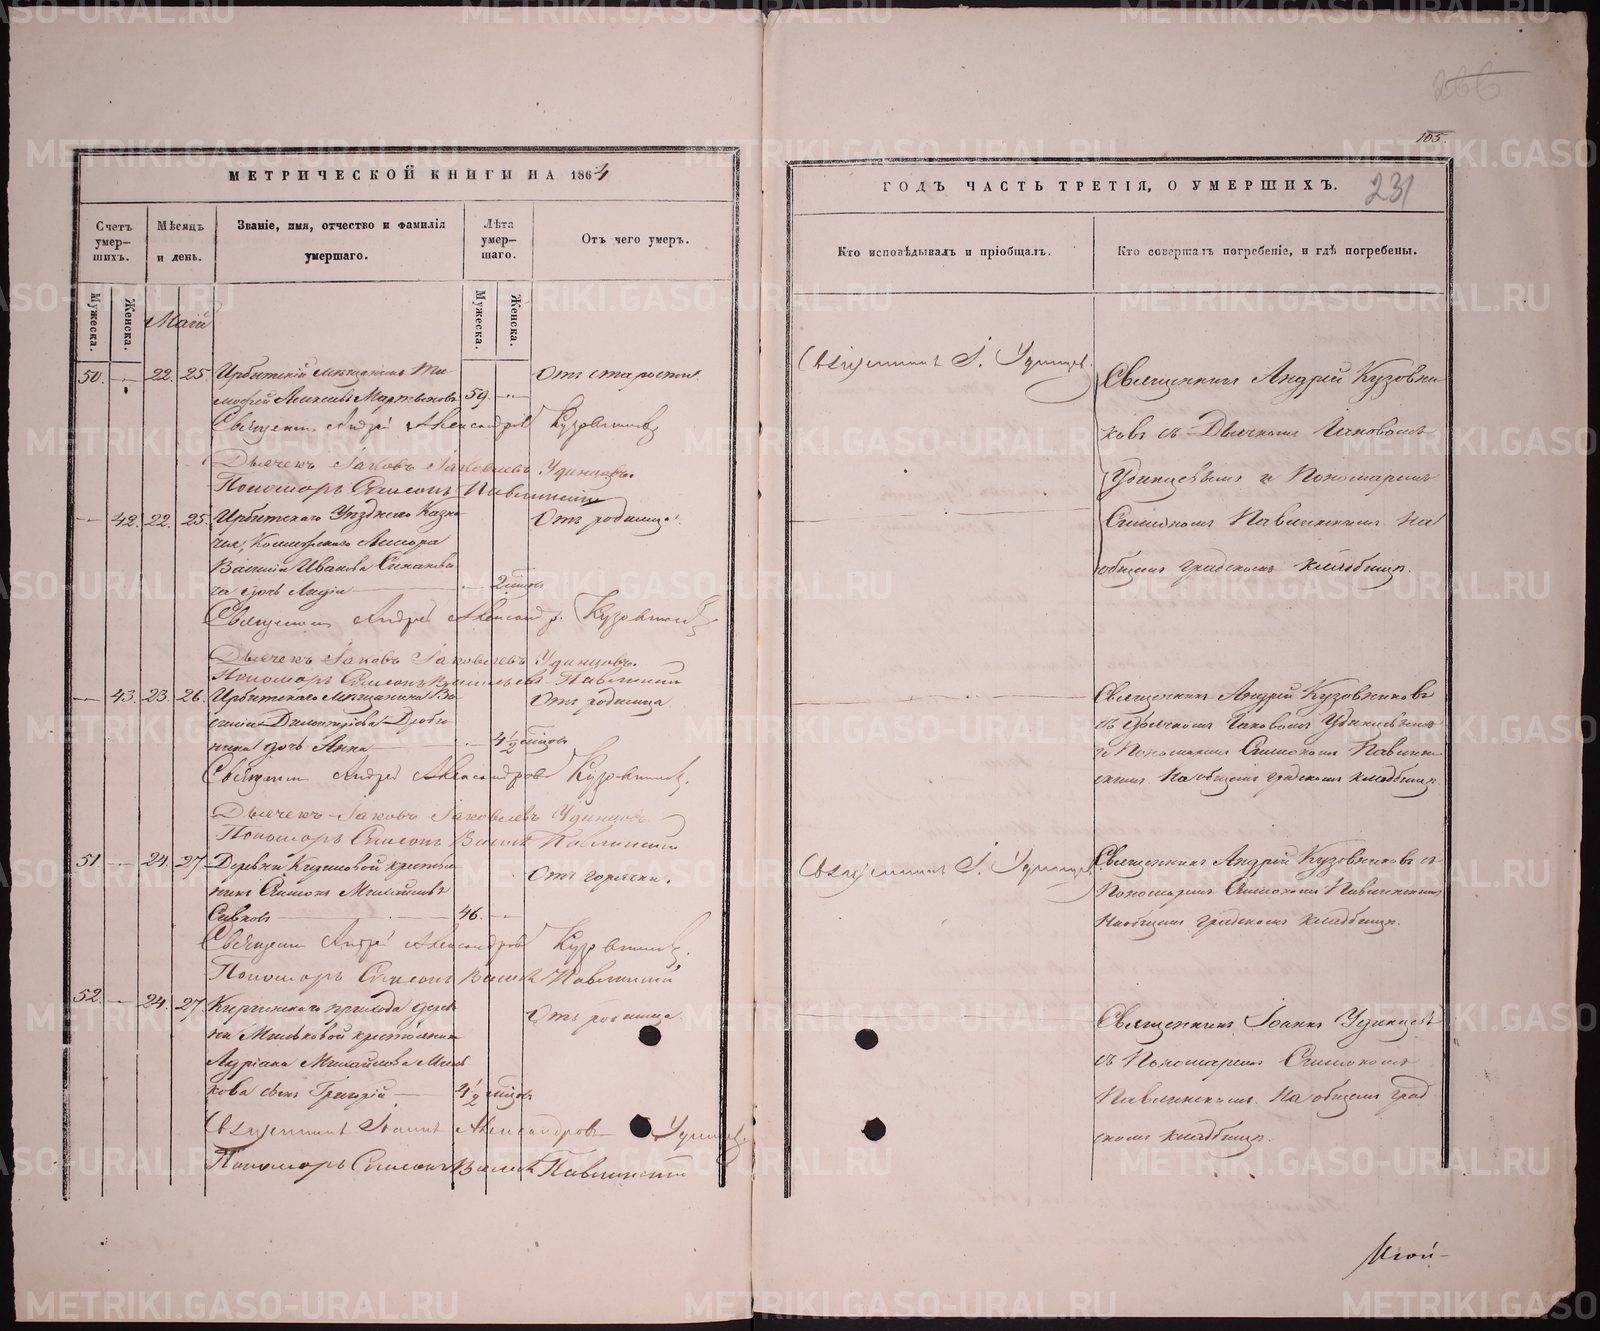 266
185.
МЕТРИЧЕСКОЙ КНИГИ НА 1864
ГОДЪ ЧАСТЬ ТРЕТІЯ, О УМЕРШИХЪ.
231
Счетъ умер-шихъ.
Мѣсяцъ и день.
Званіе, имя, отчество и фамилія умершаго.
Лѣта умер-шаго.
Отъ чего умеръ.
Кто исповѣдывалъ и пріобщалъ.
Кто совершалъ погребеніе, и гдѣ погребены.
Мужеска.
Женска.
Мужеска.
Женска.
Май
50. 22. 25. Ирбитскій мѣщанинъ Ти-
мофей Алексѣевъ Мартьяновъ 59.
Отъ старости.
Священникъ І. Удинцевъ.
Священникъ Андрей Кузовни-
ковъ съ Дьячкомъ Іаковомъ
Удинцевымъ и Пономаремъ
Симеономъ Павлинскимъ на
общемъ градскомъ кладбищѣ.
Священникъ Андрей Александровъ Кузовниковъ
Дьячекъ Іаковъ Іаковлевъ Удинцовъ.
Пономарь Симеонъ Павлинскій
42. 22. 25. Ирбитскаго Уѣзднаго Казна-
чея,
Василія Иванова
дочь Лидія 2 мѣсяцъ
Отъ родимца.
Священникъ Андрей Александр. Кузовниковъ
Дьячекъ Іаковъ Іаковлевъ Удинцовъ.
Пономарь Симеонъ Васильевъ Павлинскій
43. 23. 26. Ирбитскаго мѣщанина Ва-
силія Димитріева
дочь Анна 4½ мѣсяцъ
Отъ родимца
Священникъ Андрей Кузовниковъ
съ дьячкомъ Іаковомъ Удинцевымъ
и Пономаремъ Симеономъ Павлин-
скимъ. На общемъ градскомъ кладбищѣ.
Священникъ Андрей Александровъ Кузовниковъ.
Дьячекъ Іаковъ Іаковлевъ Удинцовъ
Пономарь Симеонъ Васил. Павлинскій
51 24. 27. Деревни Кириловой крестья-
нинъ Симеонъ Михайловъ
Сивковъ 46.
Отъ горячки.
Священникъ І. Удинцевъ.
Священникъ Андрей Кузовниковъ съ
Пономаремъ Симеономъ Павлинскимъ
На общемъ градскомъ кладбищѣ.
Священникъ Андрей Александровъ Кузовниковъ.
Пономарь Симеонъ Васил. Павлинскій
52. 24. 27. Киргинскаго прихода дерев-
ни Мильковой крестьянина
Андріана Михайлова Миль-
кова сынъ Григорій 4½ мѣсяцъ
Отъ родимца.
Священникъ Іоаннъ Удинцевъ
съ Пономаремъ Симеономъ
Павлинскимъ. На общемъ град-
скомъ кладбищѣ.
Священникъ Іоаннъ Александровъ Удинцевъ
Пономарь Симеонъ Васил. Павлинскій
METRIKI.GASO-URAL.RU